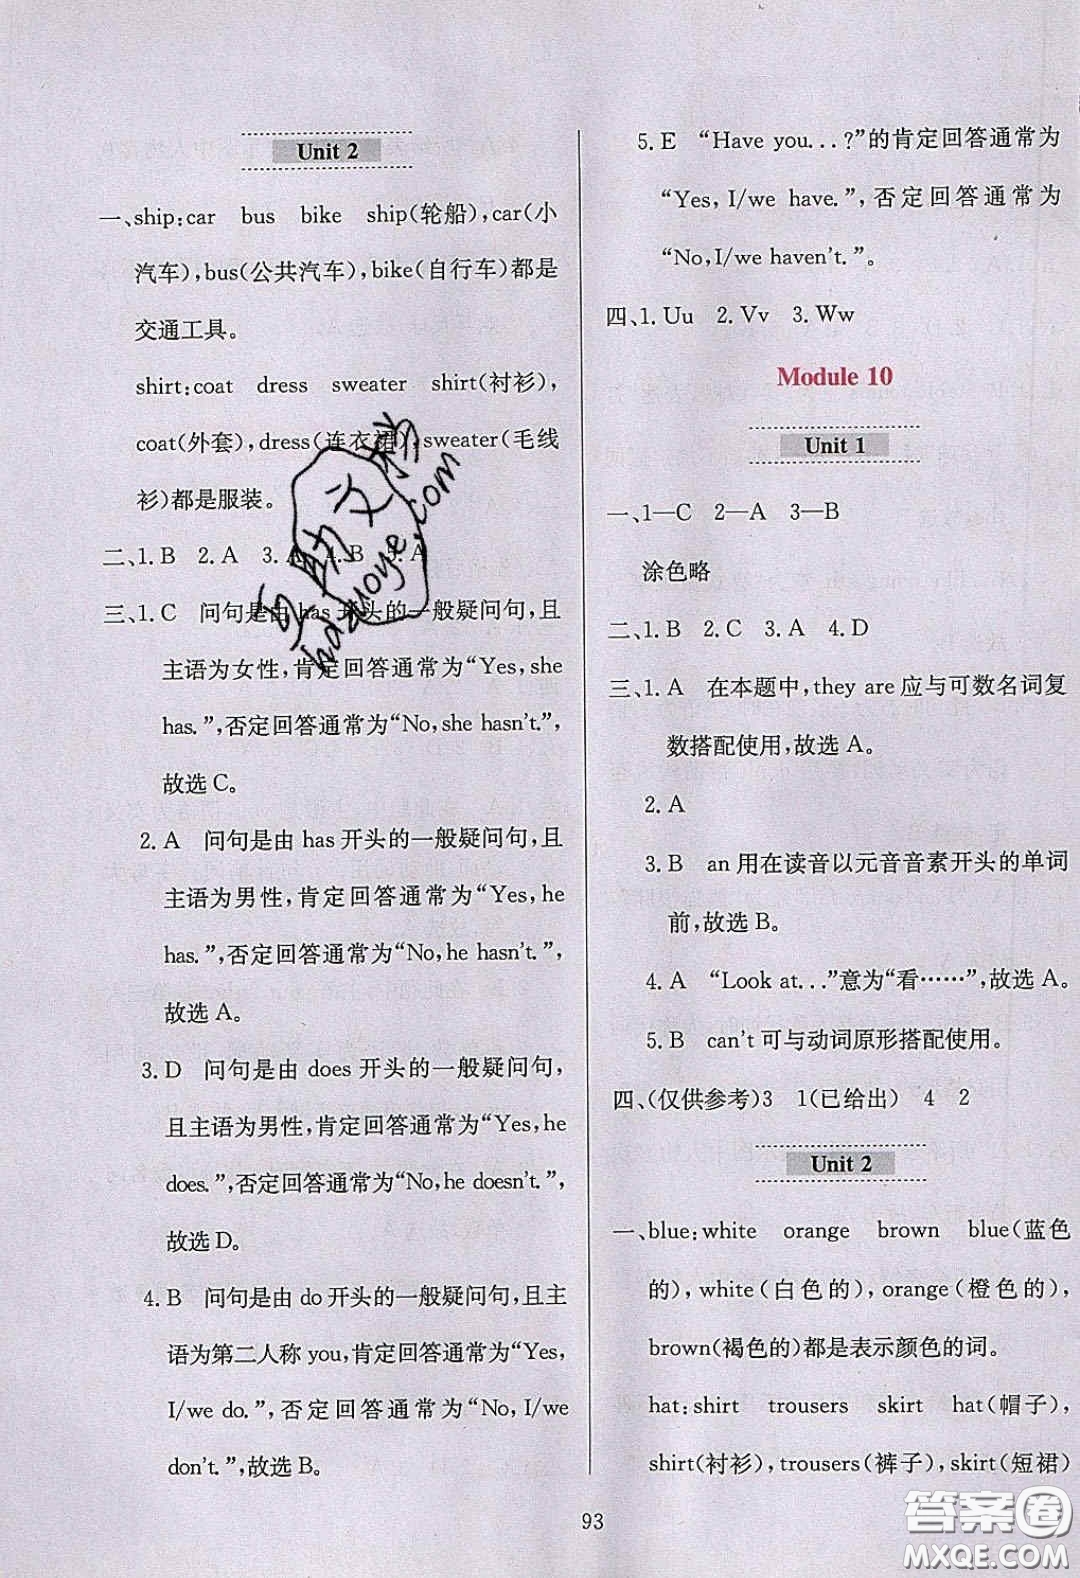 Unit 2
一、ship:car bus bike ship(轮船),car(小
汽车),bus(公共汽车),bike(自行车)都是
交通工具。
shirt:coat dress sweater shirt(衬衫),
coat(外套),dress(连衣裙),sweater(毛线
衫)都是服装。
二、1. B 2. A 3. A 4. B 5. A
三、1. C 问句是由 has 开头的一般疑问句,且
主语为女性,肯定回答通常为“Yes, she
has.”,否定回答通常为“No, she hasn't.”,
故选 C。
2. A 问句是由 has 开头的一般疑问句,且
主语为男性,肯定回答通常为“Yes, he
has.”,否定回答通常为“No, he hasn't.”,
故选 A。
3. D 问句是由 does 开头的一般疑问句,
且主语为男性,肯定回答通常为“Yes, he
does.”,否定回答通常为“No, he doesn't.”,
故选 D。
4. B 问句是由 do 开头的一般疑问句,且主
语为第二人称 you,肯定回答通常为“Yes,
I/we do.”,否定回答通常为“No, I/we
don't.”,故选 B。
5. E “Have you...?”的肯定回答通常为
“Yes, I/we have.”,否定回答通常为
“No, I/we haven't.”。
四、1. Uu 2. Vv 3. Ww
Module 10
Unit 1
一、1—C 2—A 3—B
涂色略
二、1. B 2. C 3. A 4. D
三、1. A 在本题中,they are 应与可数名词复
数搭配使用,故选 A。
2. A
3. B an 用在读音以元音音素开头的单词
前,故选 B。
4. A “Look at...”意为“看……”,故选 A。
5. B can't 可与动词原形搭配使用。
四、(仅供参考)3 1(已给出) 4 2
Unit 2
一、blue:white orange brown blue(蓝色
的),white(白色的),orange(橙色的),
brown(褐色的)都是表示颜色的词。
hat:shirt trousers skirt hat(帽子),
shirt(衬衫),trousers(裤子),skirt(短裙)
93
答案圈
MXQE.COM